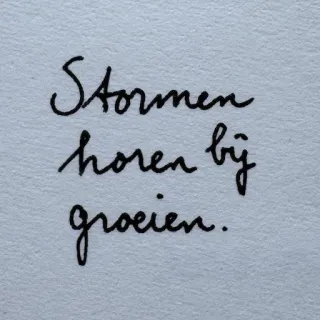 Stormen
horen bij
groeien.